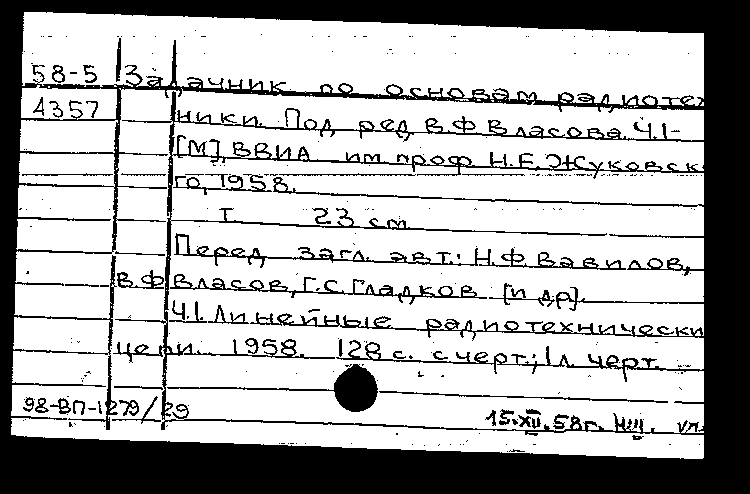 58-5 Задачник по основам радиотех
4357 ники. Под ред В.Ф Власова. Ч.1-
[М], ВВИА им проф Н.Е.Жуковск
го, 1958.
Т. 23 см.
Перед загл. авт.: Н.Ф Вавилов,
В.Ф Власов, Г.С.Гладков [и др].
Ч.1. Линейные радиотехнически
цепи. 1958. 128 с. с черт.; 1 л. черт.
98-ВП-1279/29 15.XII.58г.